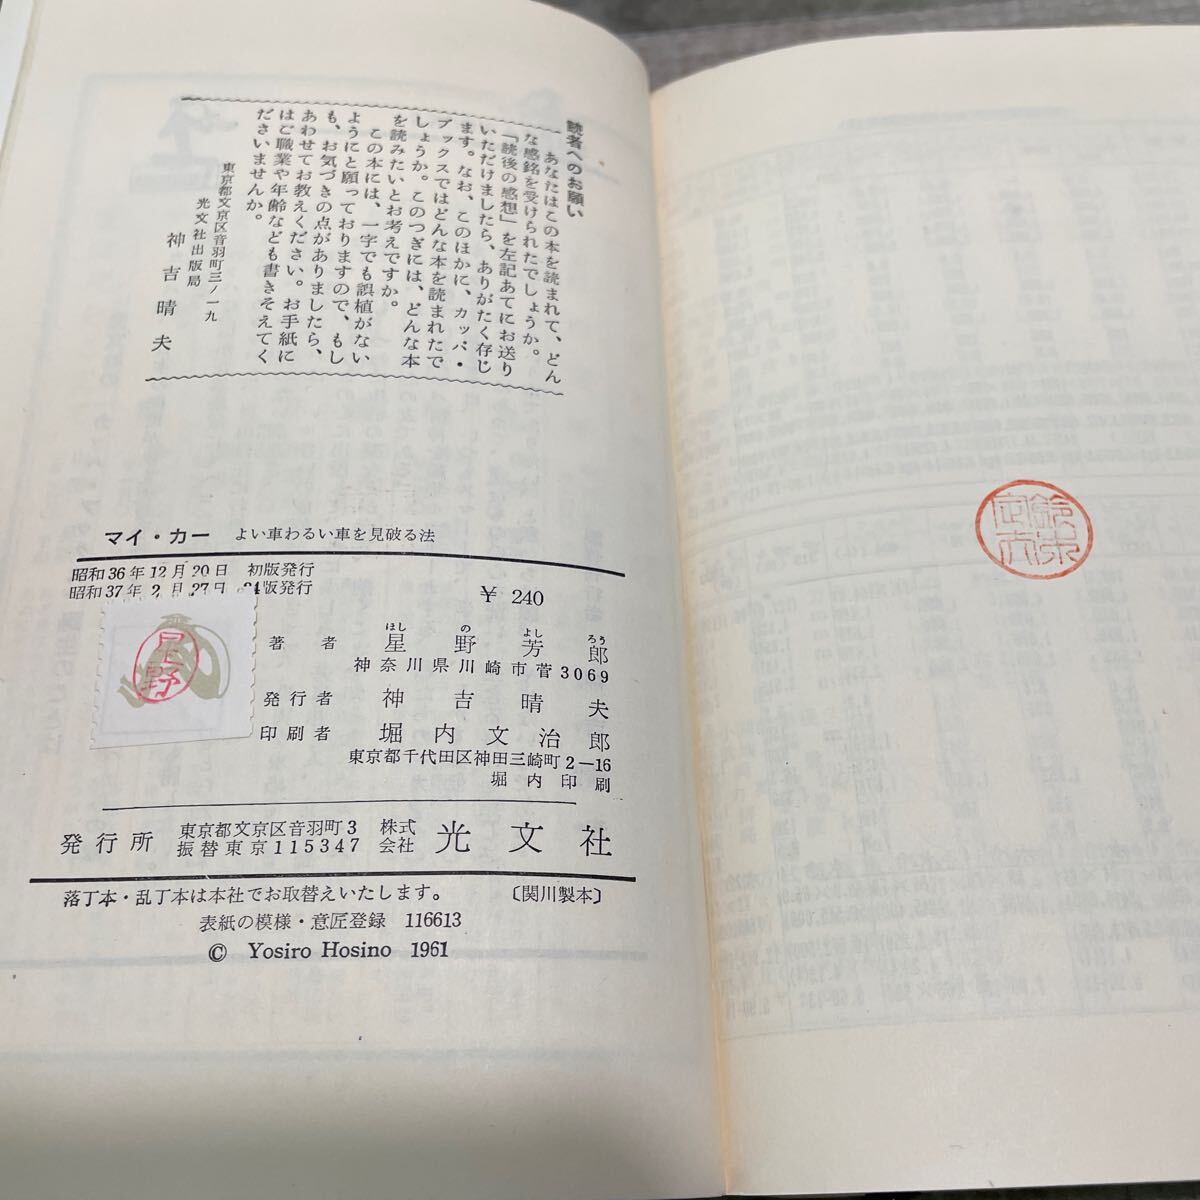 読者へのお願い
あなたはこの本を読まれて、どん
な感銘を受けられたでしょうか。
「読後の感想」を左記あてにお送り
いただけましたら、ありがたく存じ
ます。なお、このほかに、カッパ・
ブックスではどんな本を読まれたで
しょうか。このつぎには、どんな本
を読みたいとお考えですか。
この本には、一字でも誤植がない
ようにと願っておりますので、もし
も、お気づきの点がありましたら、
あわせてお教えください。お手紙に
はご職業や年齢なども書きそえてく
ださいませんか。
東京都文京区音羽町三ノ一九
光文社出版局
神吉晴夫
マイ・カー よい車わるい車を見破る法
昭和36年12月20日 初版発行
昭和37年2月27日 24版発行
¥ 240
著者 星野芳郎
ほし の よし ろう
神奈川県川崎市菅3069
発行者 神吉晴夫
印刷者 堀内文治郎
東京都千代田区神田三崎町2-16
堀内印刷
発行所 東京都文京区音羽町3 株式 光文社
振替東京115347 会社
落丁本・乱丁本は本社でお取替えいたします。 〔関川製本〕
表紙の模様・意匠登録 116613
© Yosiro Hosino 1961
星野